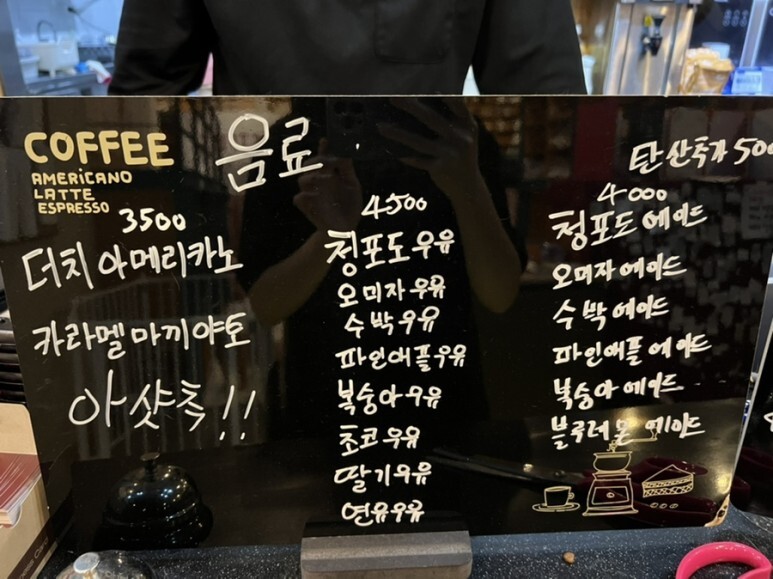 COFFEE
AMERICANO
LATTE
ESPRESSO
음료
3500
더치아메리카노
카라멜마끼야또
아샷추!!
4500
청포도우유
오미자우유
수박우유
파인애플우유
복숭아우유
초코우유
딸기우유
연유우유
탄산추가 500
4000
청포도에이드
오미자에이드
수박에이드
파인애플에이드
복숭아에이드
블루레몬에이드